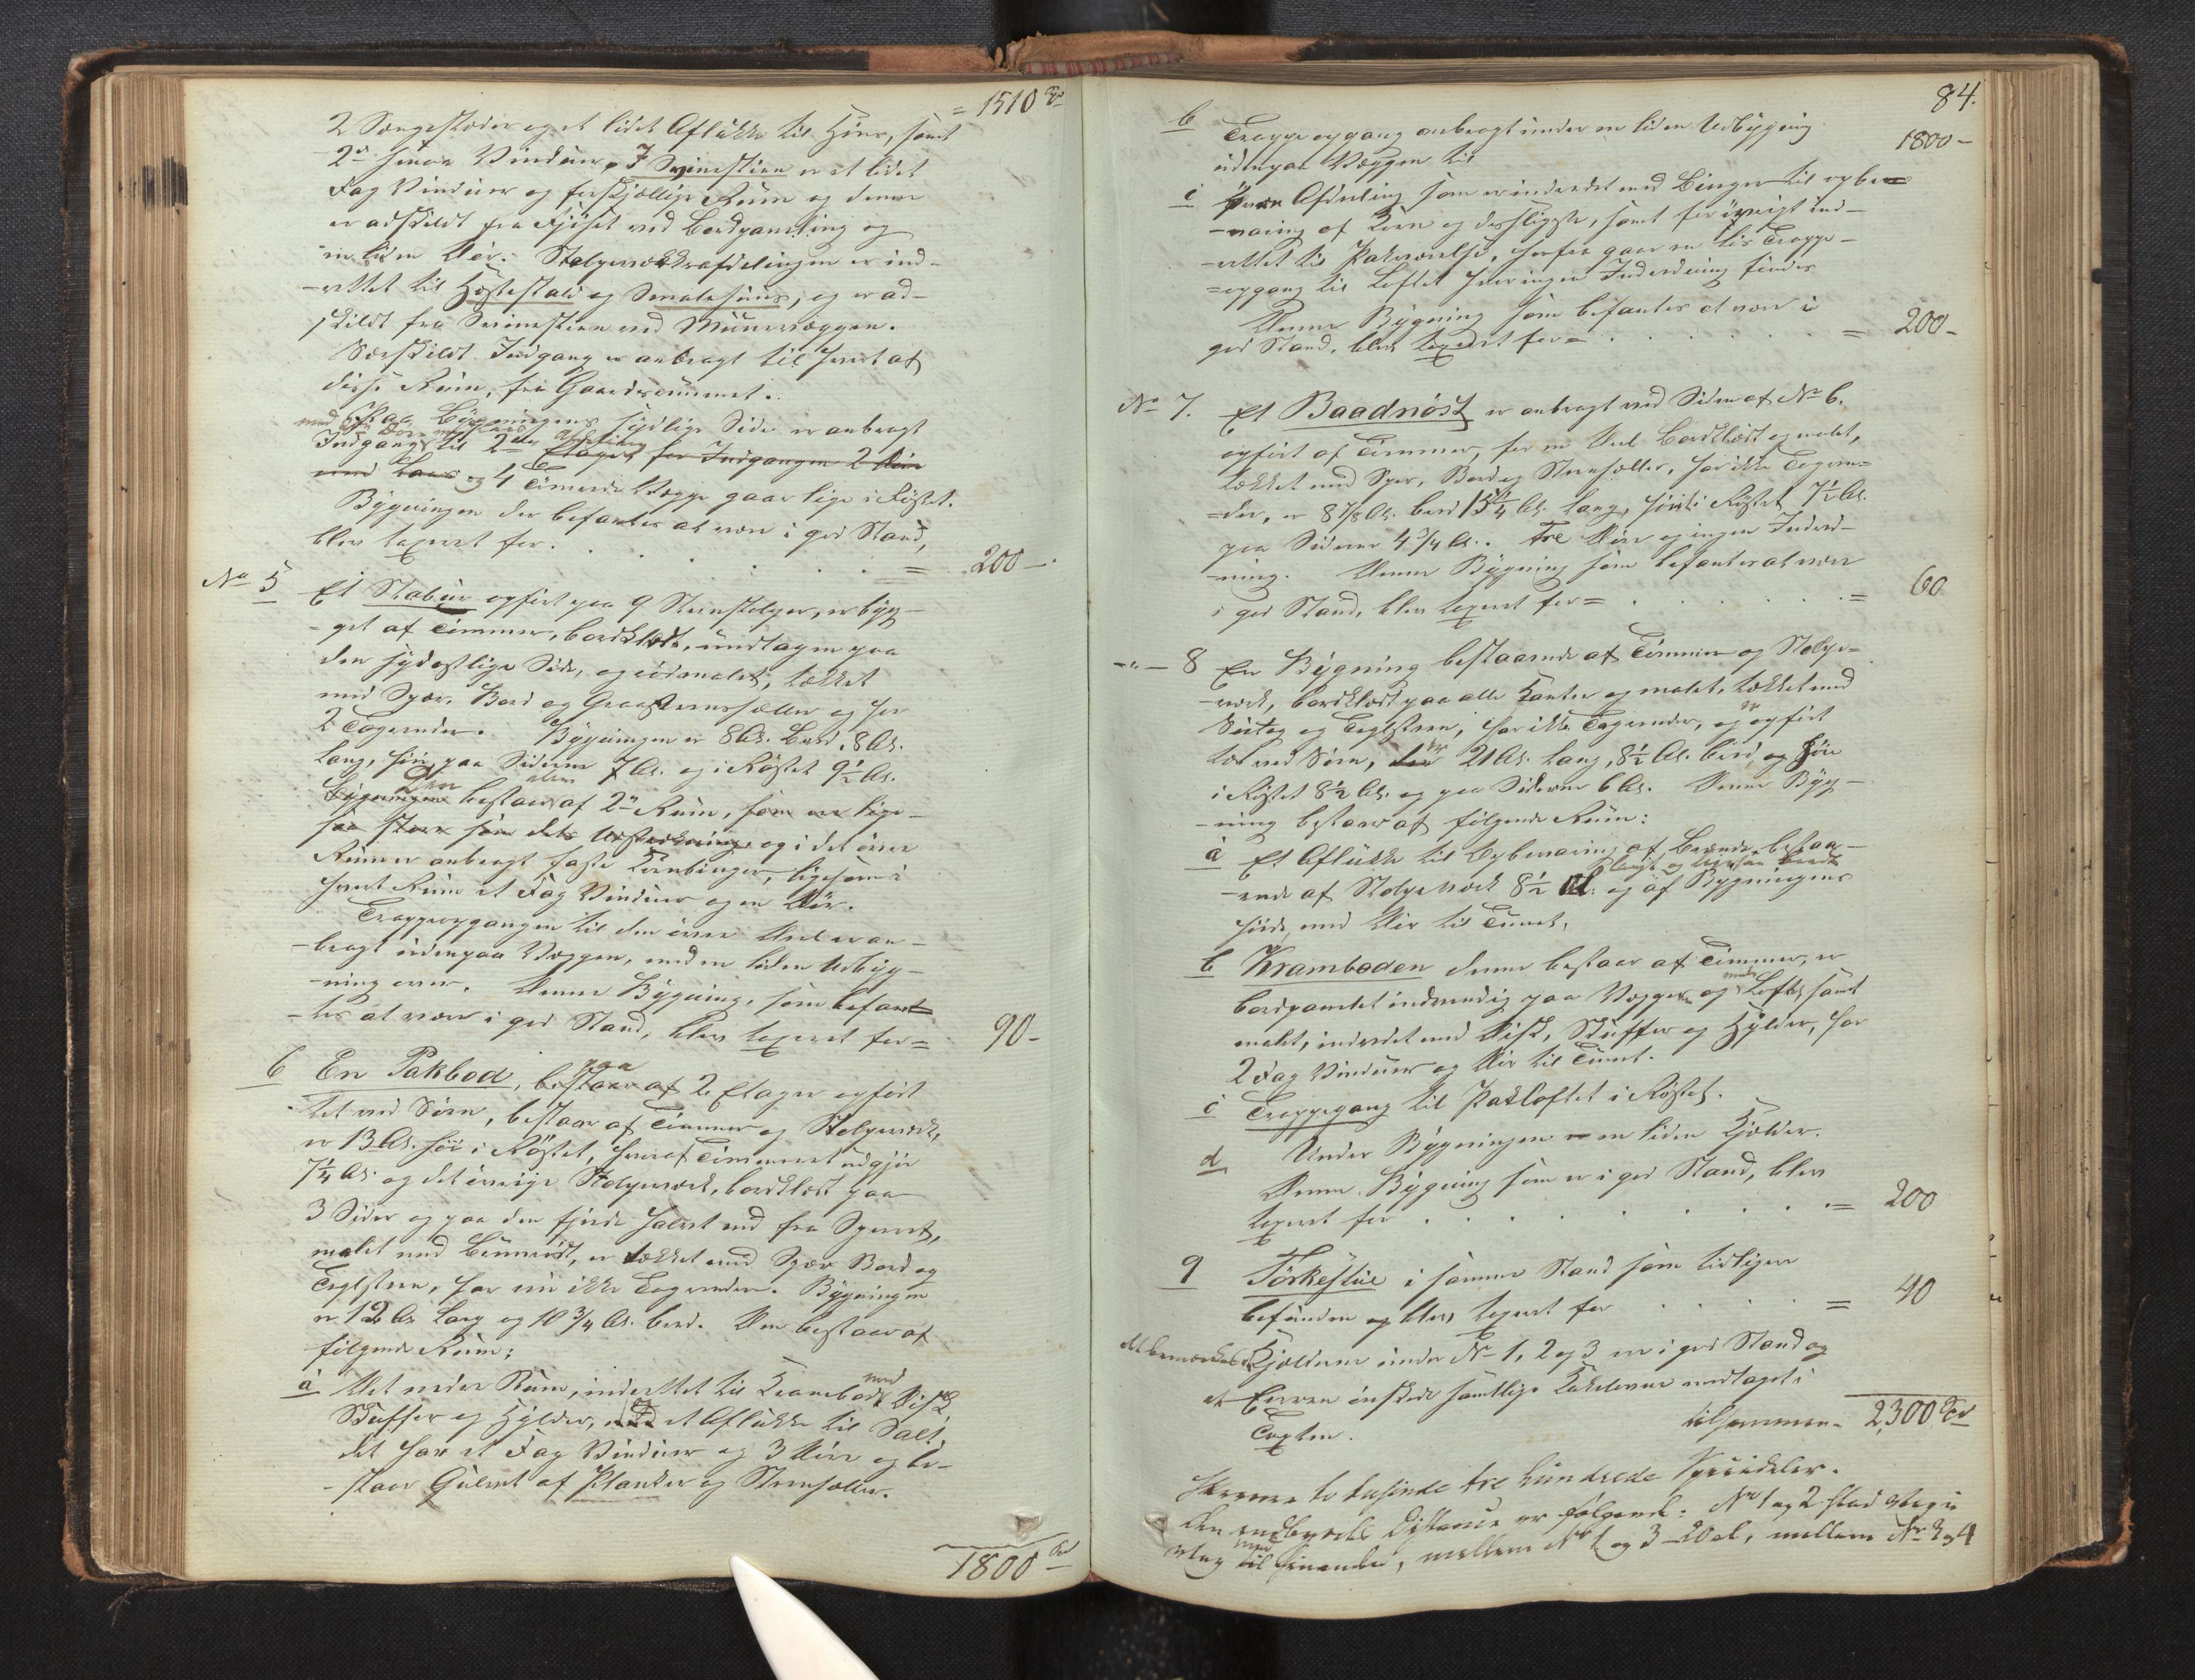 = 1510 Sp
2 Sengesteder og et lidet Aflukke til Høns, samt
2de smaa Vinduer. I Svinestien er et lidet
Fag Vinduer og forskjællige Rum og denne
er adskildt fra Fjøset ved Bordpaneling og
en liden Dør. Stolpeværksafdelingen er ind-
-rettet til Hestestald og Smalehuus, og er ad-
skildt fra Svinestien ved Muurvæggen.
Særskildt Indgang er anbragt til hvert af
disse Rum, fra Gaardsrummet.
Paa Bygningens sydlige Side er anbragt
Indgang til 2den Etage, for Indgangen 2 Døre
med Laas og 4 Tømrede Vægge gaar lige i Røstet.
Bygningen der befantes at være i god Stand,
blev taxeret for . . . . . . = 200 -
No 5 Et Stabur opført paa 9 Steenstolper, er byg-
-get af Tømmer, bordklædt, undtagen paa
den sydøstlige Side, og rødmalet, tækket
med Spær, Bord og Graasteensheller og har
2 Tagrender. Bygningen er 8 Al. bred, 8 Al.
lang, høi paa Siderne 7 Al. og i Røstet 9½ Al.
Bygningen bestaar af 2de Rum, som ere lige-
saa store som dets Udstrækning og i det øvre
Rum er anbragt faste Kornbinger, ligesom i
hvert Rum et Fag Vinduer og en Dør.
Trappeopgangen til den øvre Deel er an-
-bragt udenpaa Væggen, med en liden Udbyg-
-ning over. Denne Bygning, som befant-
-tes at være i god Stand, blev taxeret for = 90 -
6 En Pakbod, paa bestaar af 2 Etager opført
tæt ved Søen, bestaar af Tømmer og Stolpeværk,
er 13 Al. høi i Røstet, hvoraf Tømmeret udgjør
7¼ Al. og det øvrige Stolpeværk, bordklædt paa
3 Sider og paa den fjerde halvt ned fra Sperret,
malet med Bruunrødt, er tækket med Spær Bord og
Teglsteen, har nu ikke Tagrender. Bygningen
er 12 Al. lang og 10¾ Al. bred. Den bestaar af
følgende Rum:
a Det nedre Rum, indrettet til Krambod med Disk
Skuffer og Hylder, med et Aflukke til Salt,
det har et Fag Vinduer og 3 Døre og be-
-staar Gulvet af Planker og Steenheller.
1800 Sp
84.
1800 -
b Trappeopgang anbragt under en liden Udbygning
udenpaa Væggen til
c øvre Afdeling som er indredet med Binger til opbe-
-varing af Korn og desligeste, samt forøvrigt ind-
-rettet til Pakværelse, herfra gaar en liden Trappe-
-opgang til Loftet hvor ingen Indredning findes
Denne Bygning som befantes at være i
god Stand, blev taxeret for = . . . . . = 200 -
No 7. Et Baadnøst er anbragt ved Siden af No 6.
opført af Tømmer, for en Deel bordklædt og malet,
tækket med Sper, Bord og Steenheller, har ikke Tagren-
-der, er 8⅞ Al. bred 15¼ Al. lang, høi i Røstet 7½ Al.
paa Siderne 4¾ Al. Tre Døre og ingen Indred-
-ning. Denne Bygning som befantes at være
i god Stand, blev taxeret for = . . . . = 60
-"- 8 En Bygning bestaaende af Tømmer og Stolpe-
-værk, bordklædt paa alle Kanter og malet, tækket med
Sutag og Teglsteen, har ikke Tagrender, og er opført
tæt ved Søen, er 21 Al. lang, 8½ Al. bred, og høi
i Røstet 8½ Al. og paa Siderne 6 Al. Denne Byg-
-ning bestaar af følgende Rum:
a Et Aflukke til Opbevaring af Brænde, bestaa-
-ende af Stolpeværk 8½ Al. og af Bygningens
Høide, med Dør til Tunet,
b Kramboden denne bestaar af Tømmer, er
bordpanelet indvendig paa Vægger og under Loftet, samt
malet, indredet med Disk, Skuffer og Hylder, har
2 Fag Vinduer og Dør til Tunet.
c Trappegang til Pakloftet i Røstet.
d Under Bygningen er en liden Kjælder.
Denne Bygning som er i god Stand, blev
taxeret for . . . . . . . = 200
9 Tørkestue i samme Stand som tidligere
befunden og blev taxeret for . . . . = 40
det bemærkes at Kjælderne under No 1, 2 og 3 ere i god Stand og
at Eieren ønskede samtlige Kakelovne medtaget i
Taxten.
tilsammen 2,300 Sp
Skriver to tusinde tre hundrede Speciedaler.
Den indbyrdes Distance er følgende: No 1 og 2 staa
til hinanden, mellem No 1 og 3 - 20 al, mellem No 3 og 4